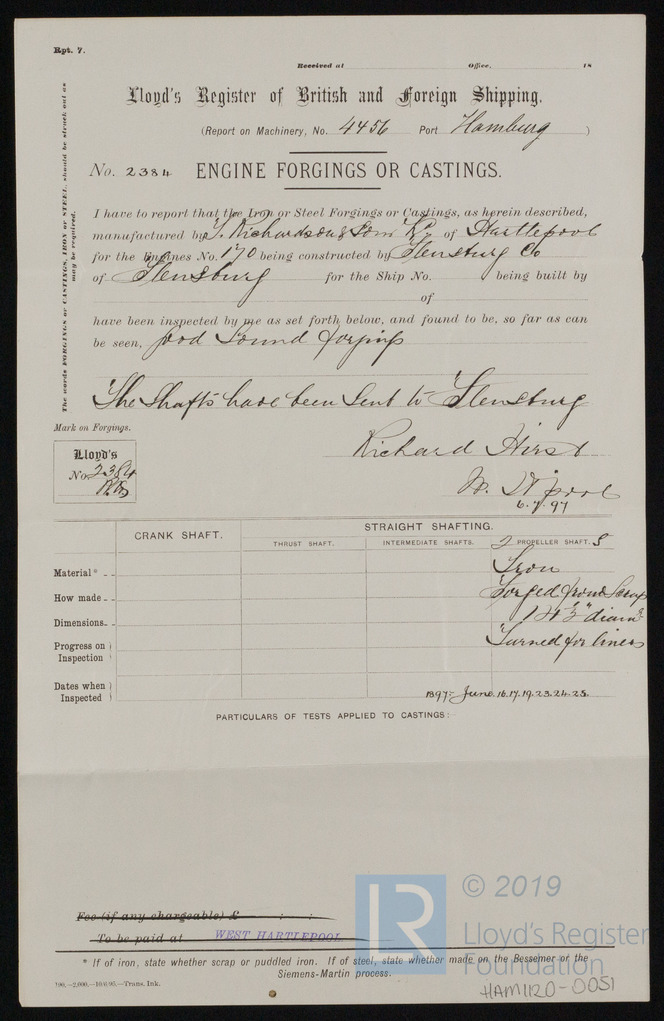 Rpt. 7.
Received at Office, 18
Lloyd's Register of British and Foreign Shipping.
(Report on Machinery, No. 4456 Port Hamburg )
No. 2384 ENGINE FORGINGS OR CASTINGS.
The words FORGINGS or CASTINGS, IRON or STEEL, should be struck out as
may be required.
I have to report that the Iron or Steel Forgings or Castings, as herein described,
manufactured by T. Richardson & Sons Ld. of Hartlepool
for the Engines No. 170 being constructed by Flensburg Co
of Flensburg for the Ship No. being built by
of
have been inspected by me as set forth below, and found to be, so far as can
be seen, good sound forgings
The Shafts have been sent to Flensburg
Mark on Forgings.
Richard Hirst
Lloyd's
No. 2384
W. H'pool
6.7.97
CRANK SHAFT.
STRAIGHT SHAFTING.
THRUST SHAFT. INTERMEDIATE SHAFTS. 2 PROPELLER SHAFT.S
Material* Iron
How made Forged from Scrap
Dimensions 14⅜" diamr
Progress on
Inspection
Turned for liners
Dates when
Inspected
1897: June. 16.17.19.23.24.25.
PARTICULARS OF TESTS APPLIED TO CASTINGS:—
Fee (if any chargeable) £ : :
To be paid at WEST HARTLEPOOL
* If of iron, state whether scrap or puddled iron. If of steel, state whether made on the Bessemer or the
Siemens-Martin process.
700.—2,000.—10/6/95.—Trans. Ink.
LR
© 2019
Lloyd's Register
Foundation
HAM1120-0051